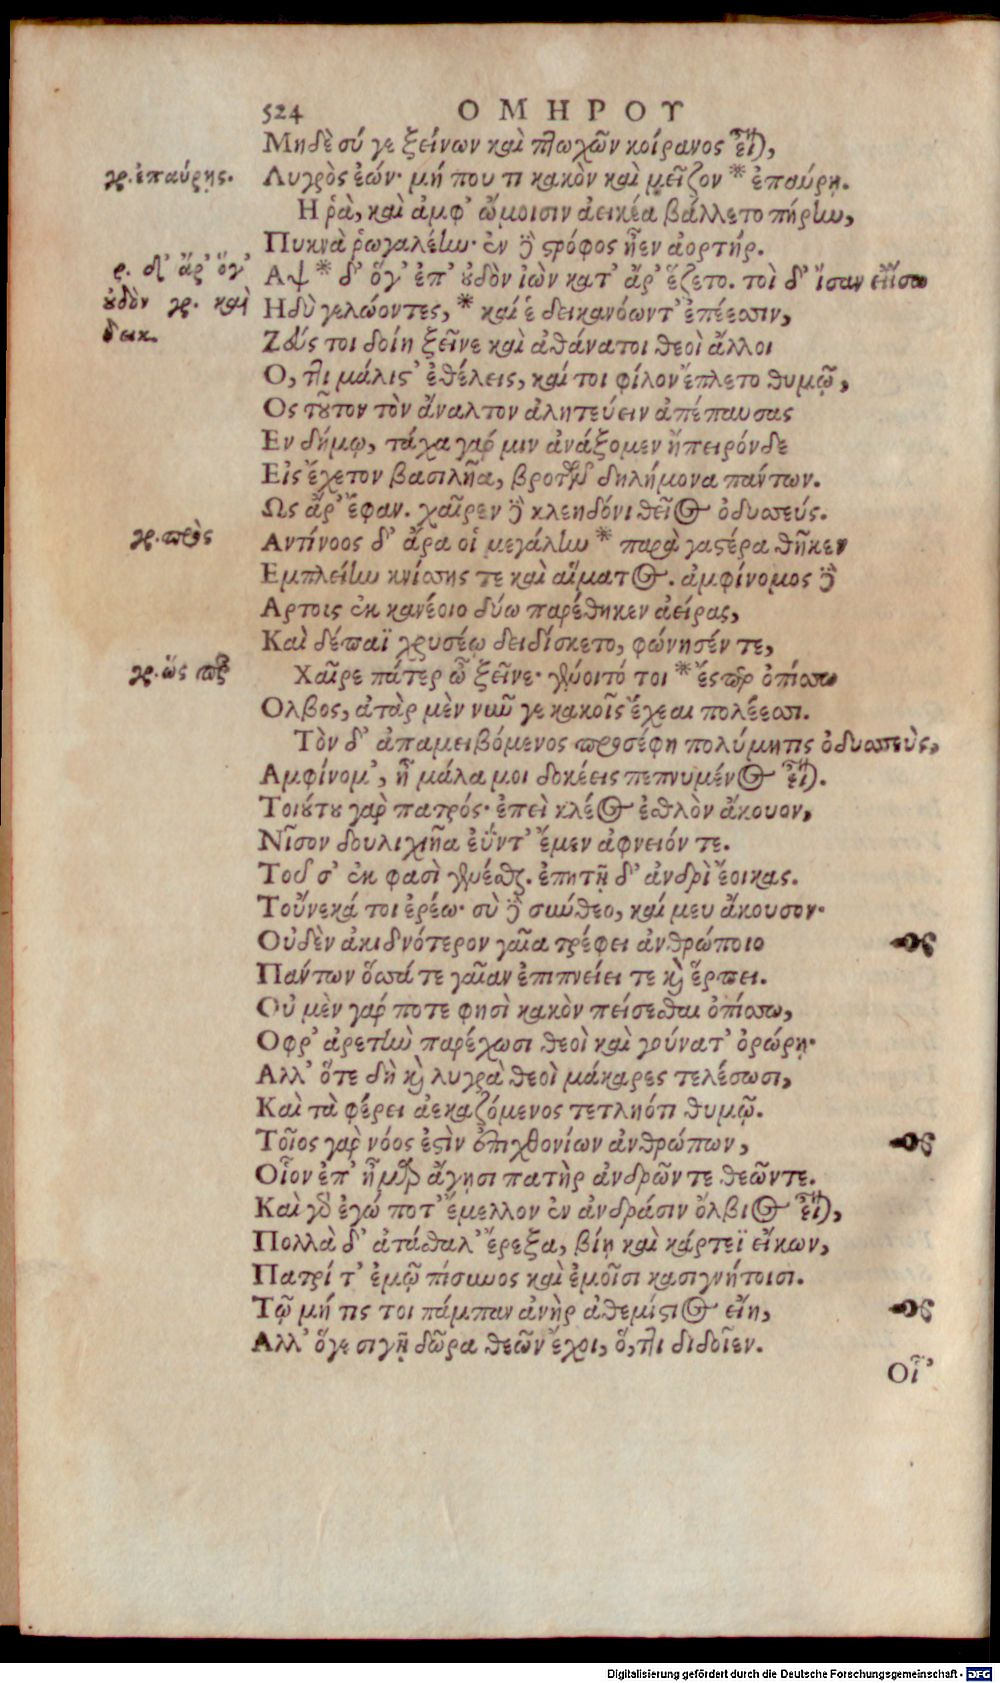 524 ΟΜΗΡΟΥ
Μηδὲ σύ γε ξείνων καὶ πτωχῶν κοίρανος εἶναι,
γρ. ἐπαύρης. Λυγρὸς ἐών· μή που τι κακὸν καὶ μεῖζον * ἐπαύρῃ.
Η ῥὰ, καὶ ἀμφ' ὤμοισιν ἀεικέα βάλλετο πήρην,
Πυκνὰ ῥωγαλέην· ἐν δὲ στρόφος ἦεν ἀορτήρ.
γρ. δ' ἄρ' ὅγ' Αψ * δ' ὅγ' ἐπ' οὐδὸν ἰὼν κατ' ἄρ' ἕζετο. τοὶ δ' ἴσαν εἴσω
οὐδὸν γρ. καὶ Ηδὺ γελώοντες, * καί ἑ δεικανόωντ' ἐπέεσσιν,
δεικ. Ζεύς τοι δοίη ξεῖνε καὶ ἀθάνατοι θεοὶ ἄλλοι
Ο, ττι μάλιστ' ἐθέλεις, καί τοι φίλον ἔπλετο θυμῷ,
Ος τοῦτον τὸν ἄναλτον ἀλητεύειν ἀπέπαυσας
Εν δήμῳ, τάχα γάρ μιν ἀνάξομεν ἤπειρόνδε
Εἰς ἔχετον βασιλῆα, βροτῶν δηλήμονα πάντων.
Ως ἄρ' ἔφαν. χαῖρεν δὲ κλεηδόνι θεῖος ὀδυσσεύς.
γρ. πρὸς Αντίνοος δ' ἄρα οἱ μεγάλην * παρὰ γαστέρα θῆκεν
Εμπλείην κνίσσης τε καὶ αἵματος. ἀμφίνομος δὲ
Αρτοις ἐκ κανέοιο δύω παρέθηκεν ἀείρας,
Καὶ δέπαϊ χρυσέῳ δειδίσκετο, φώνησέν τε,
γρ. ὥς περ Χαῖρε πάτερ ὦ ξεῖνε· γένοιτό τοι * ἔς περ ὀπίσσω
Ολβος, ἀτὰρ μὲν νῦν γε κακοῖς ἔχεαι πολέεσσι.
Τὸν δ' ἀπαμειβόμενος προσέφη πολύμητις ὀδυσσεὺς,
Αμφίνομ', ἦ μάλα μοι δοκέεις πεπνυμένος εἶναι.
Τοιούτου γὰρ πατρός· ἐπεὶ κλέος ἐσθλὸν ἄκουον,
Νῖσον δουλιχιῆα ἐΰντ' ἔμεν ἀφνειόν τε.
Τοῦ σ' ἐκ φασὶ γενέσθαι. ἐπητῇ δ' ἀνδρὶ ἔοικας.
Τοὔνεκά τοι ἐρέω· σὺ δὲ σύνθεο, καί μευ ἄκουσον·
Οὐδὲν ἀκιδνότερον γαῖα τρέφει ἀνθρώποιο
Πάντων ὅσσά τε γαῖαν ἐπιπνείει τε καὶ ἕρπει.
Οὐ μὲν γάρ ποτε φησὶ κακὸν πείσεσθαι ὀπίσσω,
Οφρ' ἀρετὴν παρέχωσι θεοὶ καὶ γούνατ' ὀρώρῃ·
Αλλ' ὅτε δὴ καὶ λυγρὰ θεοὶ μάκαρες τελέσωσι,
Καὶ τὰ φέρει ἀεκαζόμενος τετληότι θυμῷ.
Τοῖος γὰρ νόος ἐστὶν ἐπιχθονίων ἀνθρώπων,
Οἷον ἐπ' ἦμαρ ἄγησι πατὴρ ἀνδρῶν τε θεῶν τε.
Καὶ γὰρ ἐγώ ποτ' ἔμελλον ἐν ἀνδράσιν ὄλβιος εἶναι,
Πολλὰ δ' ἀτάσθαλ' ἔρεξα, βίῃ καὶ κάρτεϊ εἴκων,
Πατρί τ' ἐμῷ πίσυνος καὶ ἐμοῖσι κασιγνήτοισι.
Τῷ μή τις τοι πάμπαν ἀνὴρ ἀθεμίστιος εἴη,
Αλλ' ὅγε σιγῇ δῶρα θεῶν ἔχοι, ὅ, ττι διδοῖεν.
Οἷ'
Digitalisierung gefördert durch die Deutsche Forschungsgemeinschaft - DFG